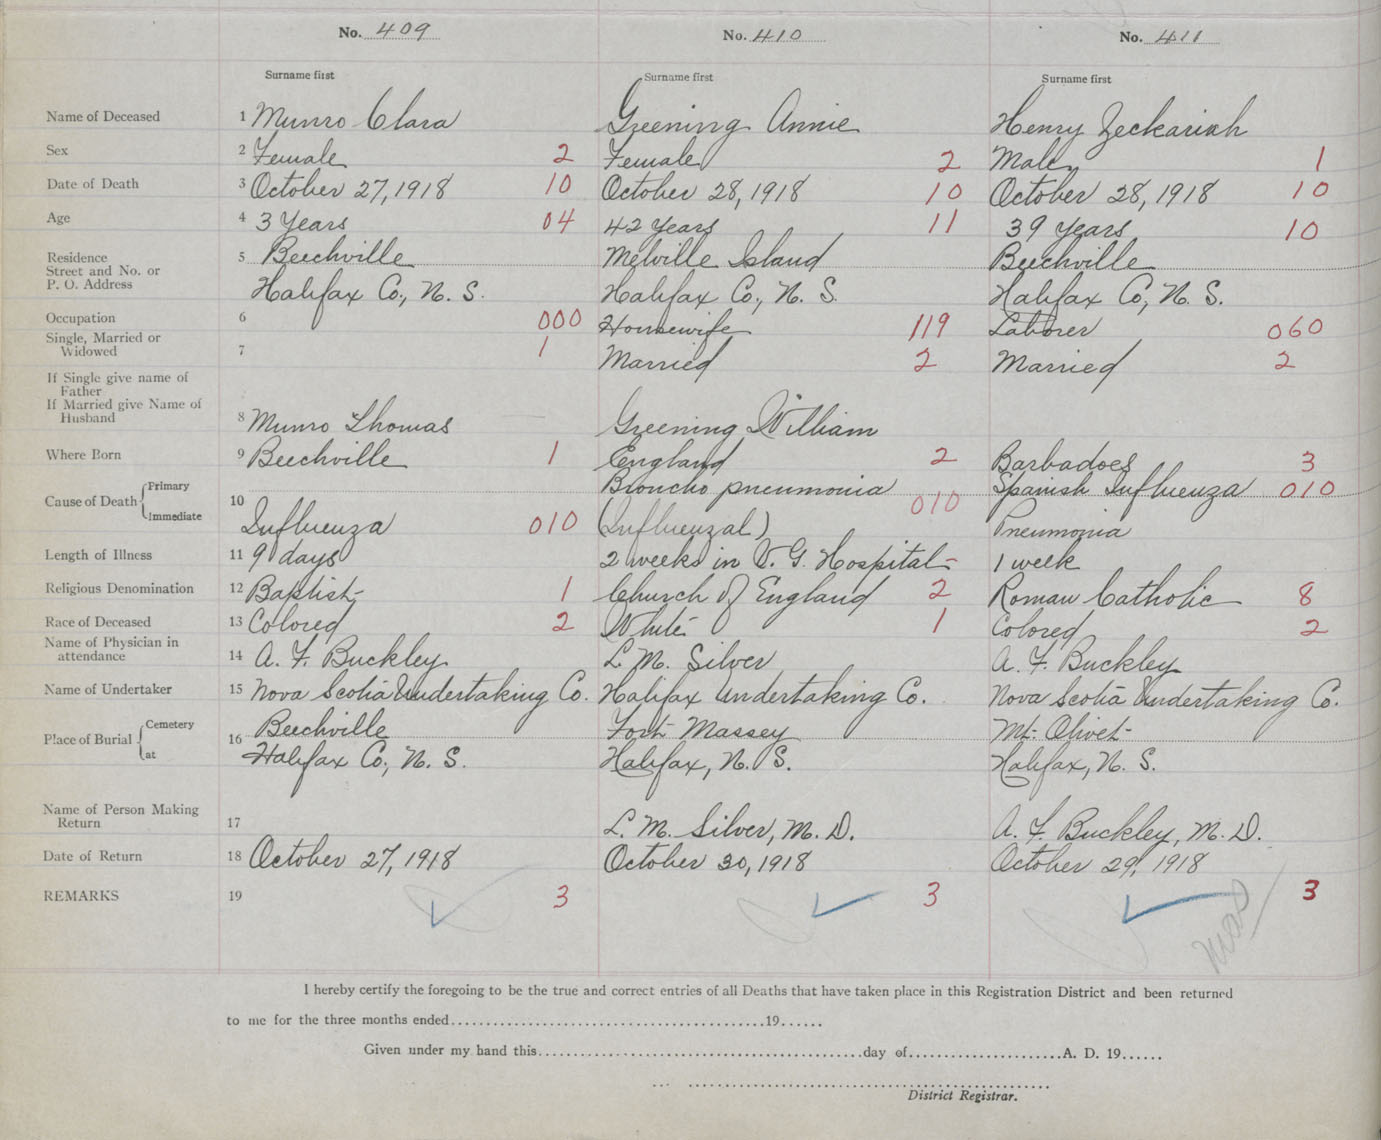 No. 409 No. 410 No. 411
Surname first Surname first Surname first
Name of Deceased 1 Munro Clara Greening Annie Henry Zeckariah
Sex 2 Female 2 Female 2 Male 1
Date of Death 3 October 27, 1918 10 October 28, 1918 10 October 28, 1918 10
Age 4 3 Years 04 42 Years 11 39 Years 10
Residence 5 Beechville Melville Island Beechville
Street and No. or
P. O. Address Halifax Co., N. S. Halifax Co., N. S. Halifax Co., N. S.
Occupation 6 000 Housewife 119 Laborer 060
Single, Married or
Widowed 7 1 Married 2 Married 2
If Single give name of
Father
If Married give Name of
Husband 8 Munro Thomas Greening William
Where Born 9 Beechville 1 England 2 Barbadoes 3
Cause of Death Primary 10 Broncho pneumonia 010 Spanish Influenza 010
Immediate Influenza 010 (Influenzal) Pneumonia
Length of Illness 11 9 days 2 weeks in V. G. Hospital 1 week
Religious Denomination 12 Baptist 1 Church of England 2 Roman Catholic 8
Race of Deceased 13 Colored 2 White 1 Colored 2
Name of Physician in
attendance 14 A. F. Buckley L. M. Silver A. F. Buckley
Name of Undertaker 15 Nova Scotia Undertaking Co. Halifax Undertaking Co. Nova Scotia Undertaking Co.
Place of Burial Cemetery 16 Beechville Fort Massey Mt. Olivet
at Halifax Co., N. S. Halifax, N. S. Halifax, N. S.
Name of Person Making
Return 17 L. M. Silver, M. D. A. F. Buckley, M. D.
Date of Return 18 October 27, 1918 October 30, 1918 October 29, 1918
REMARKS 19 3 3 3
I hereby certify the foregoing to be the true and correct entries of all Deaths that have taken place in this Registration District and been returned
to me for the three months ended..........19......
Given under my band this..........day of..........A. D. 19......
District Registrar.